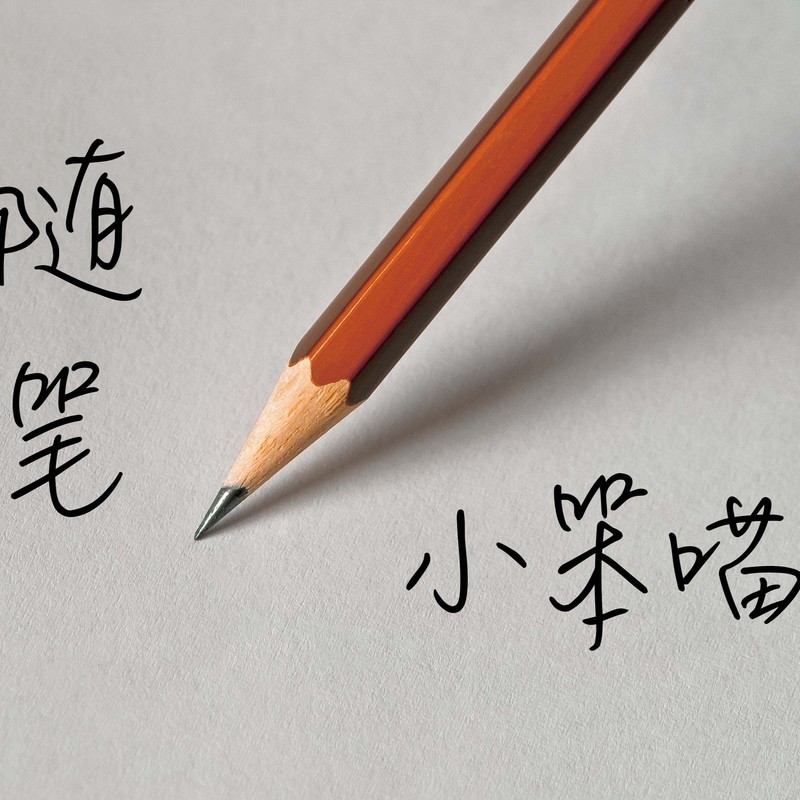 随
笔
小笨喵